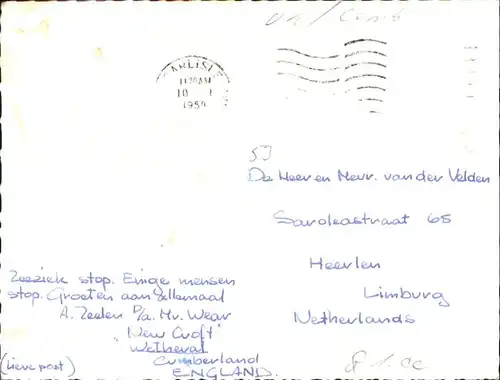 CARLISLE
11 30 AM
10
1959
De Heer en Mevr. van der Velden
Saroleastraat 65
Heerlen
Limburg
Netherlands
Zeeziek stop. Einge mensen
stop. Groeten aan allemaal
A. Zeelen P/a. Mr. Wear
"New Croft"
Wetheral
Cumberland
ENGLAND.
(Lieve post)